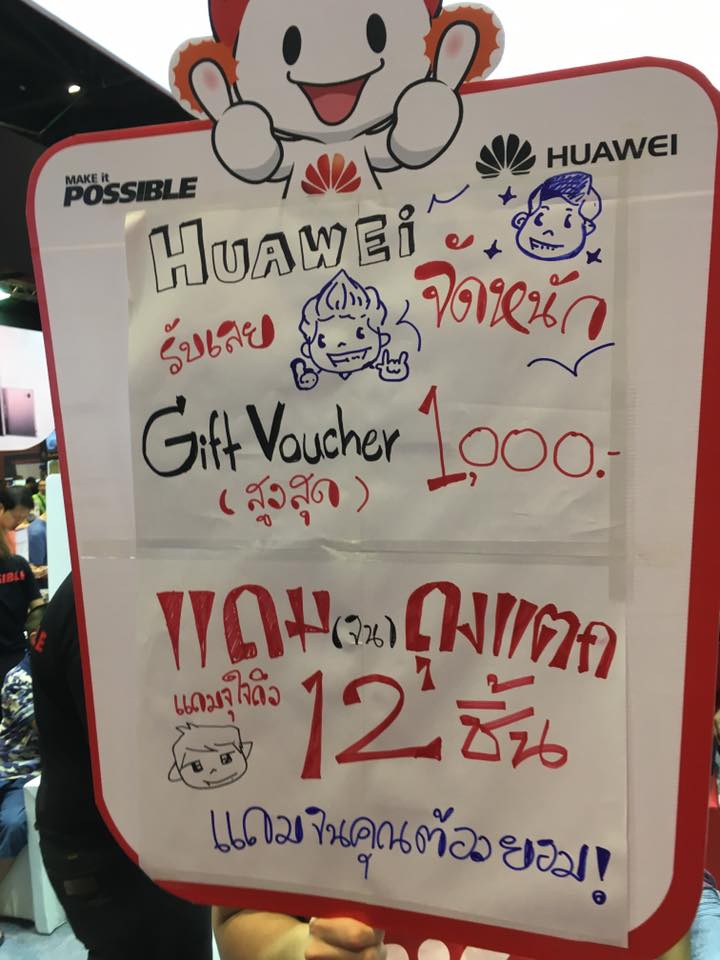 MAKE it
POSSIBLE
HUAWEI
HUAWEi
จัดหนัก
รับเลย
Gift Voucher 1,000.-
(สูงสุด)
แถม(จน)ถุงแตก
แถมจุใจถึง 12 ชิ้น
แถมจนคุณต้องยอม!